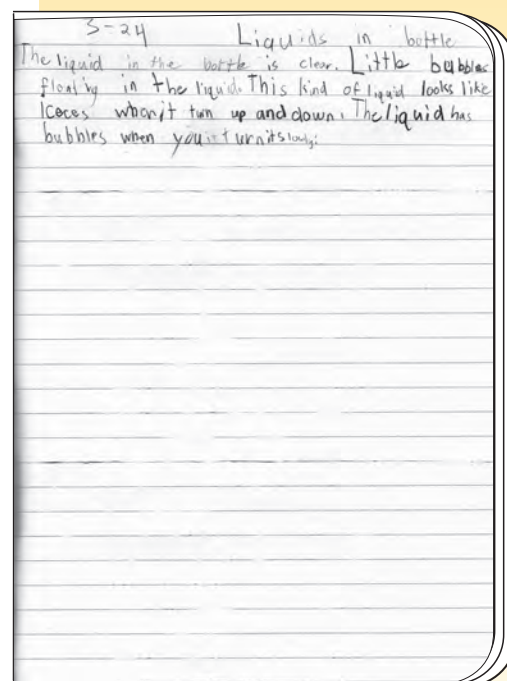 3-24 Liquids in bottle
The liquid in the bottle is clear. Little bubbles
floating in the liquid. This kind of liquid looks like
when it turn up and down. The liquid has
bubbles when you turn it slowly.